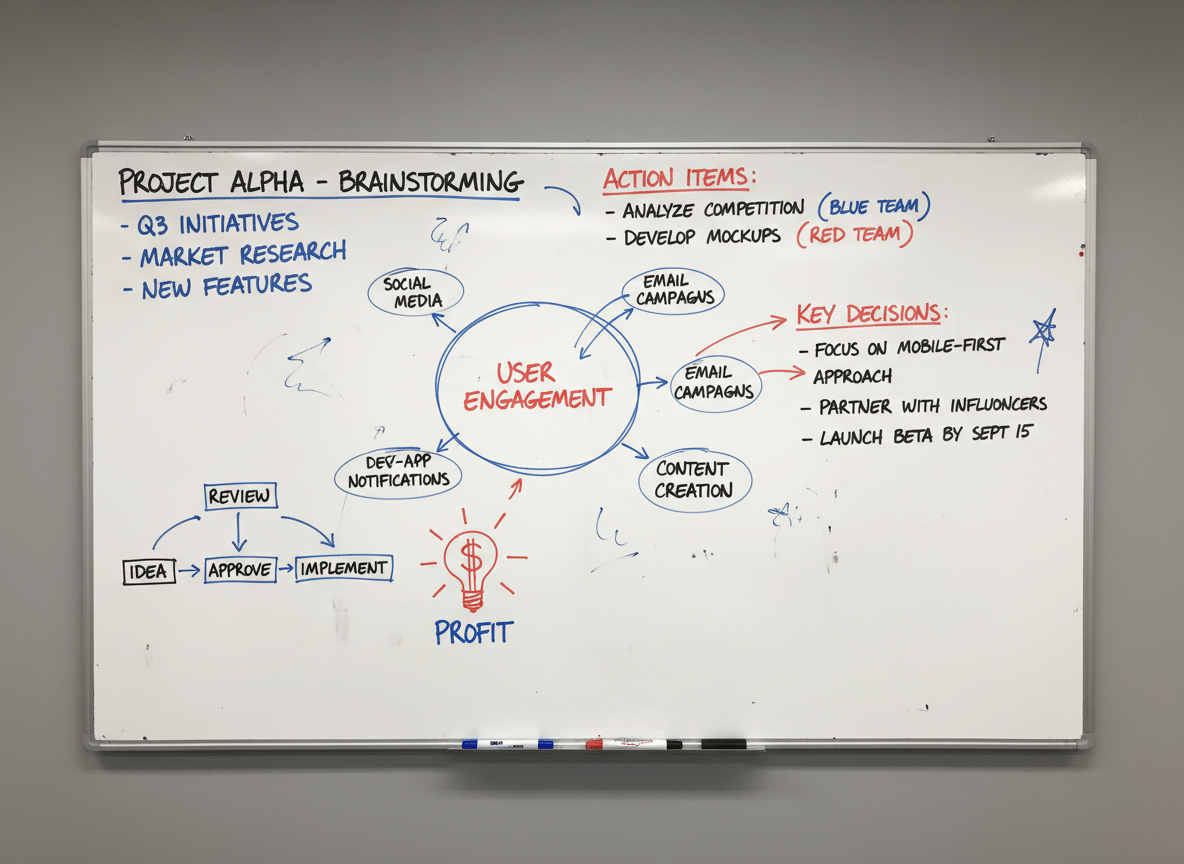 PROJECT ALPHA - BRAINSTORMING
- Q3 INITIATIVES
- MARKET RESEARCH
- NEW FEATURES
ACTION ITEMS:
- ANALYZE COMPETITION (BLUE TEAM)
- DEVELOP MOCKUPS (RED TEAM)
SOCIAL
MEDIA
EMAIL
CAMPAGNS
USER
ENGAGEMENT
EMAIL
CAMPAGNS
KEY DECISIONS:
- FOCUS ON MOBILE-FIRST
APPROACH
- PARTNER WITH INFLUONCERS
- LAUNCH BETA BY SEPT 15
DEV-APP
NOTIFICATIONS
CONTENT
CREATION
REVIEW
IDEA
APPROVE
IMPLEMENT
$
PROFIT